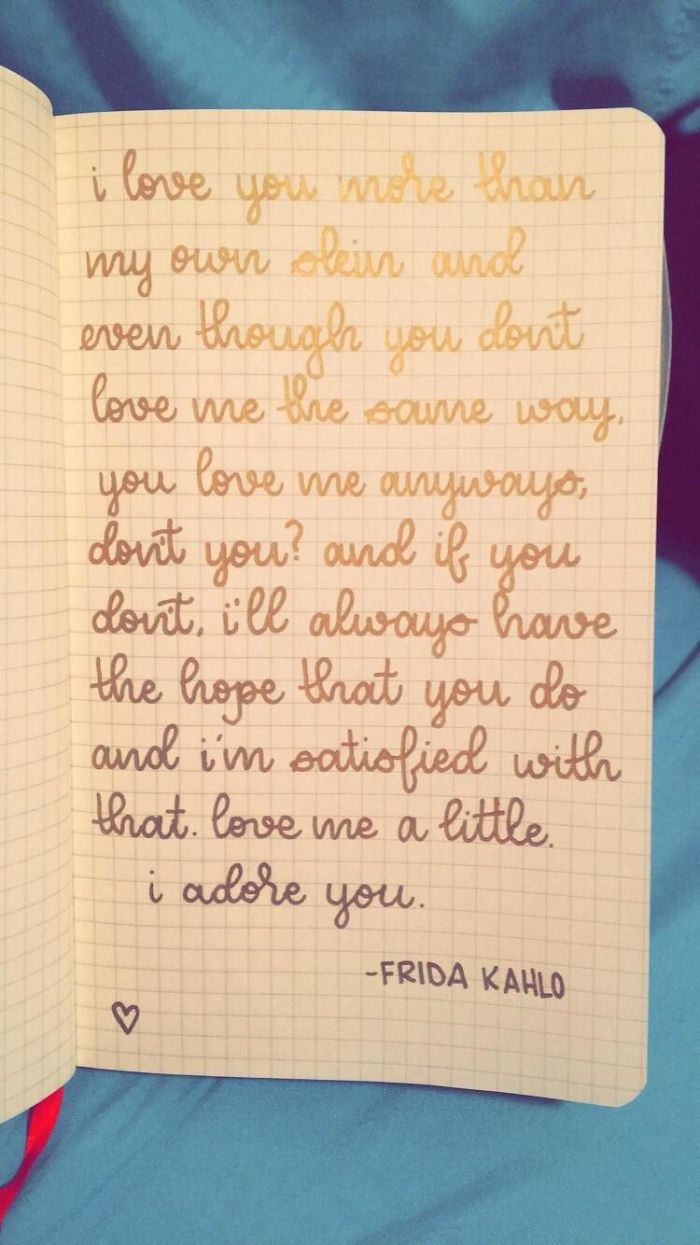 i love you more than
my own skin and
even though you don't
love me the same way,
you love me anyways,
don't you? and if you
don't, i'll always have
the hope that you do
and i'm satisfied with
that. love me a little.
i adore you.
-FRIDA KAHLO